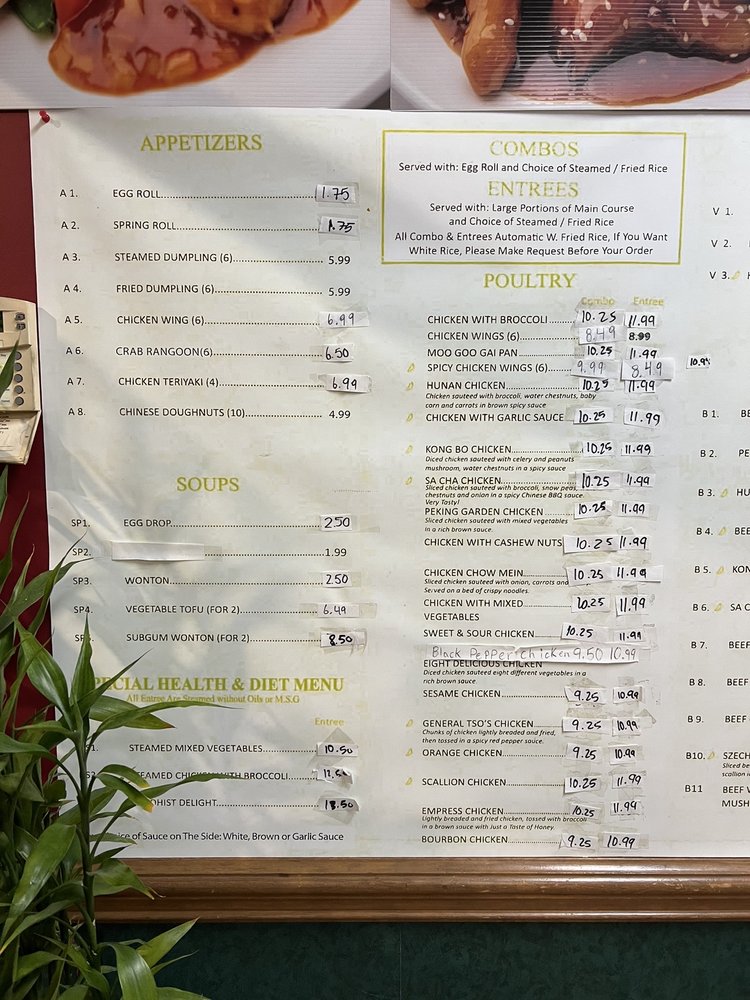 APPETIZERS
A 1. EGG ROLL 1.75
A 2. SPRING ROLL 1.75
A 3. STEAMED DUMPLING (6) 5.99
A 4. FRIED DUMPLING (6) 5.99
A 5. CHICKEN WING (6) 6.99
A 6. CRAB RANGOON(6) 6.50
A 7. CHICKEN TERIYAKI (4) 6.99
A 8. CHINESE DOUGHNUTS (10) 4.99
SOUPS
SP1. EGG DROP 2.50
SP2. 1.99
SP3. WONTON 2.50
SP4. VEGETABLE TOFU (FOR 2) 6.49
SUBGUM WONTON (FOR 2) 8.50
HEALTH & DIET MENU
All Entree Are Steamed without Oils or M.S.G
Entree
STEAMED MIXED VEGETABLES 10.50
STEAMED CHICKEN WITH BROCCOLI
DELIGHT
of Sauce on The Side: White, Brown or Garlic Sauce
COMBOS
Served with: Egg Roll and Choice of Steamed / Fried Rice
ENTREES
Served with: Large Portions of Main Course
and Choice of Steamed / Fried Rice
All Combo & Entrees Automatic W. Fried Rice, If You Want
White Rice, Please Make Request Before Your Order
POULTRY
Combo Entree
CHICKEN WITH BROCCOLI 10.25 11.99
CHICKEN WINGS (6) 8.49 8.99
MOO GOO GAI PAN 10.25 11.99
SPICY CHICKEN WINGS (6) 9.99 8.49
HUNAN CHICKEN 10.25 11.99
Chicken sauteed with broccoli, water chestnuts, baby
corn and carrots in brown spicy sauce
CHICKEN WITH GARLIC SAUCE 10.25 11.99
KONG BO CHICKEN 10.25 11.99
Diced chicken sauteed with celery and peanuts
mushroom, water chestnuts in a spicy sauce
SA CHA CHICKEN 10.25 11.99
Sliced chicken sauteed with broccoli, snow peas,
chestnuts and onion in a spicy Chinese BBQ sauce.
Very Tasty!
PEKING GARDEN CHICKEN 10.25 11.99
Sliced chicken sauteed with mixed vegetables
in a rich brown sauce.
CHICKEN WITH CASHEW NUTS 10.25 11.99
CHICKEN CHOW MEIN 10.25 11.99
Sliced chicken sauteed with onion, carrots and
Served on a bed of crispy noodles.
CHICKEN WITH MIXED 10.25 11.99
VEGETABLES
SWEET & SOUR CHICKEN 10.25 11.99
Black Pepper chicken 9.50 10.99
EIGHT DELICIOUS CHICKEN
Diced chicken sauteed eight different vegetables in a
rich brown sauce
SESAME CHICKEN 9.25 10.99
GENERAL TSO'S CHICKEN 9.25 10.99
Chunks of chicken lightly breaded and fried,
then tossed in a spicy red pepper sauce.
ORANGE CHICKEN 9.25 10.99
SCALLION CHICKEN 10.25 11.99
EMPRESS CHICKEN 10.25 11.99
Lightly breaded and fried chicken, tossed with broccoli
in a brown sauce with Just a Taste of Honey
BOURBON CHICKEN 9.25 10.99
V 1.
V 2.
V 3.
B 1.
B 2.
B 3.
B 4.
B 5.
B 6.
B 7. BEEF
B 8. BEEF
B 9. BEEF
B10.
B11 BEEF